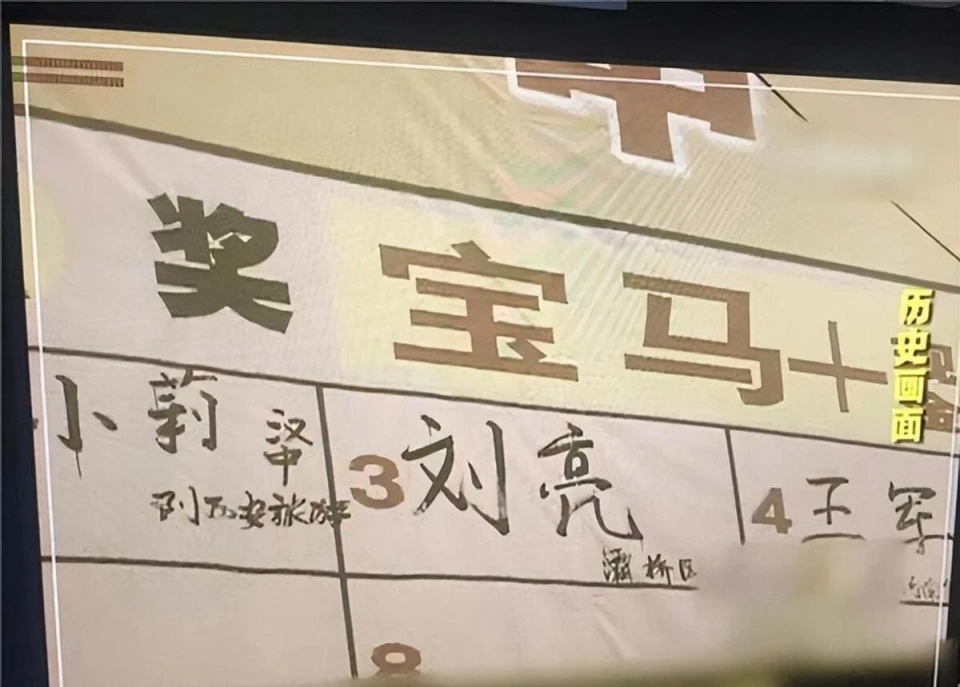 奖 宝马+
小莉 汉中
到西安旅游
3 刘亮
灞桥区
4 王军
8
历史画面